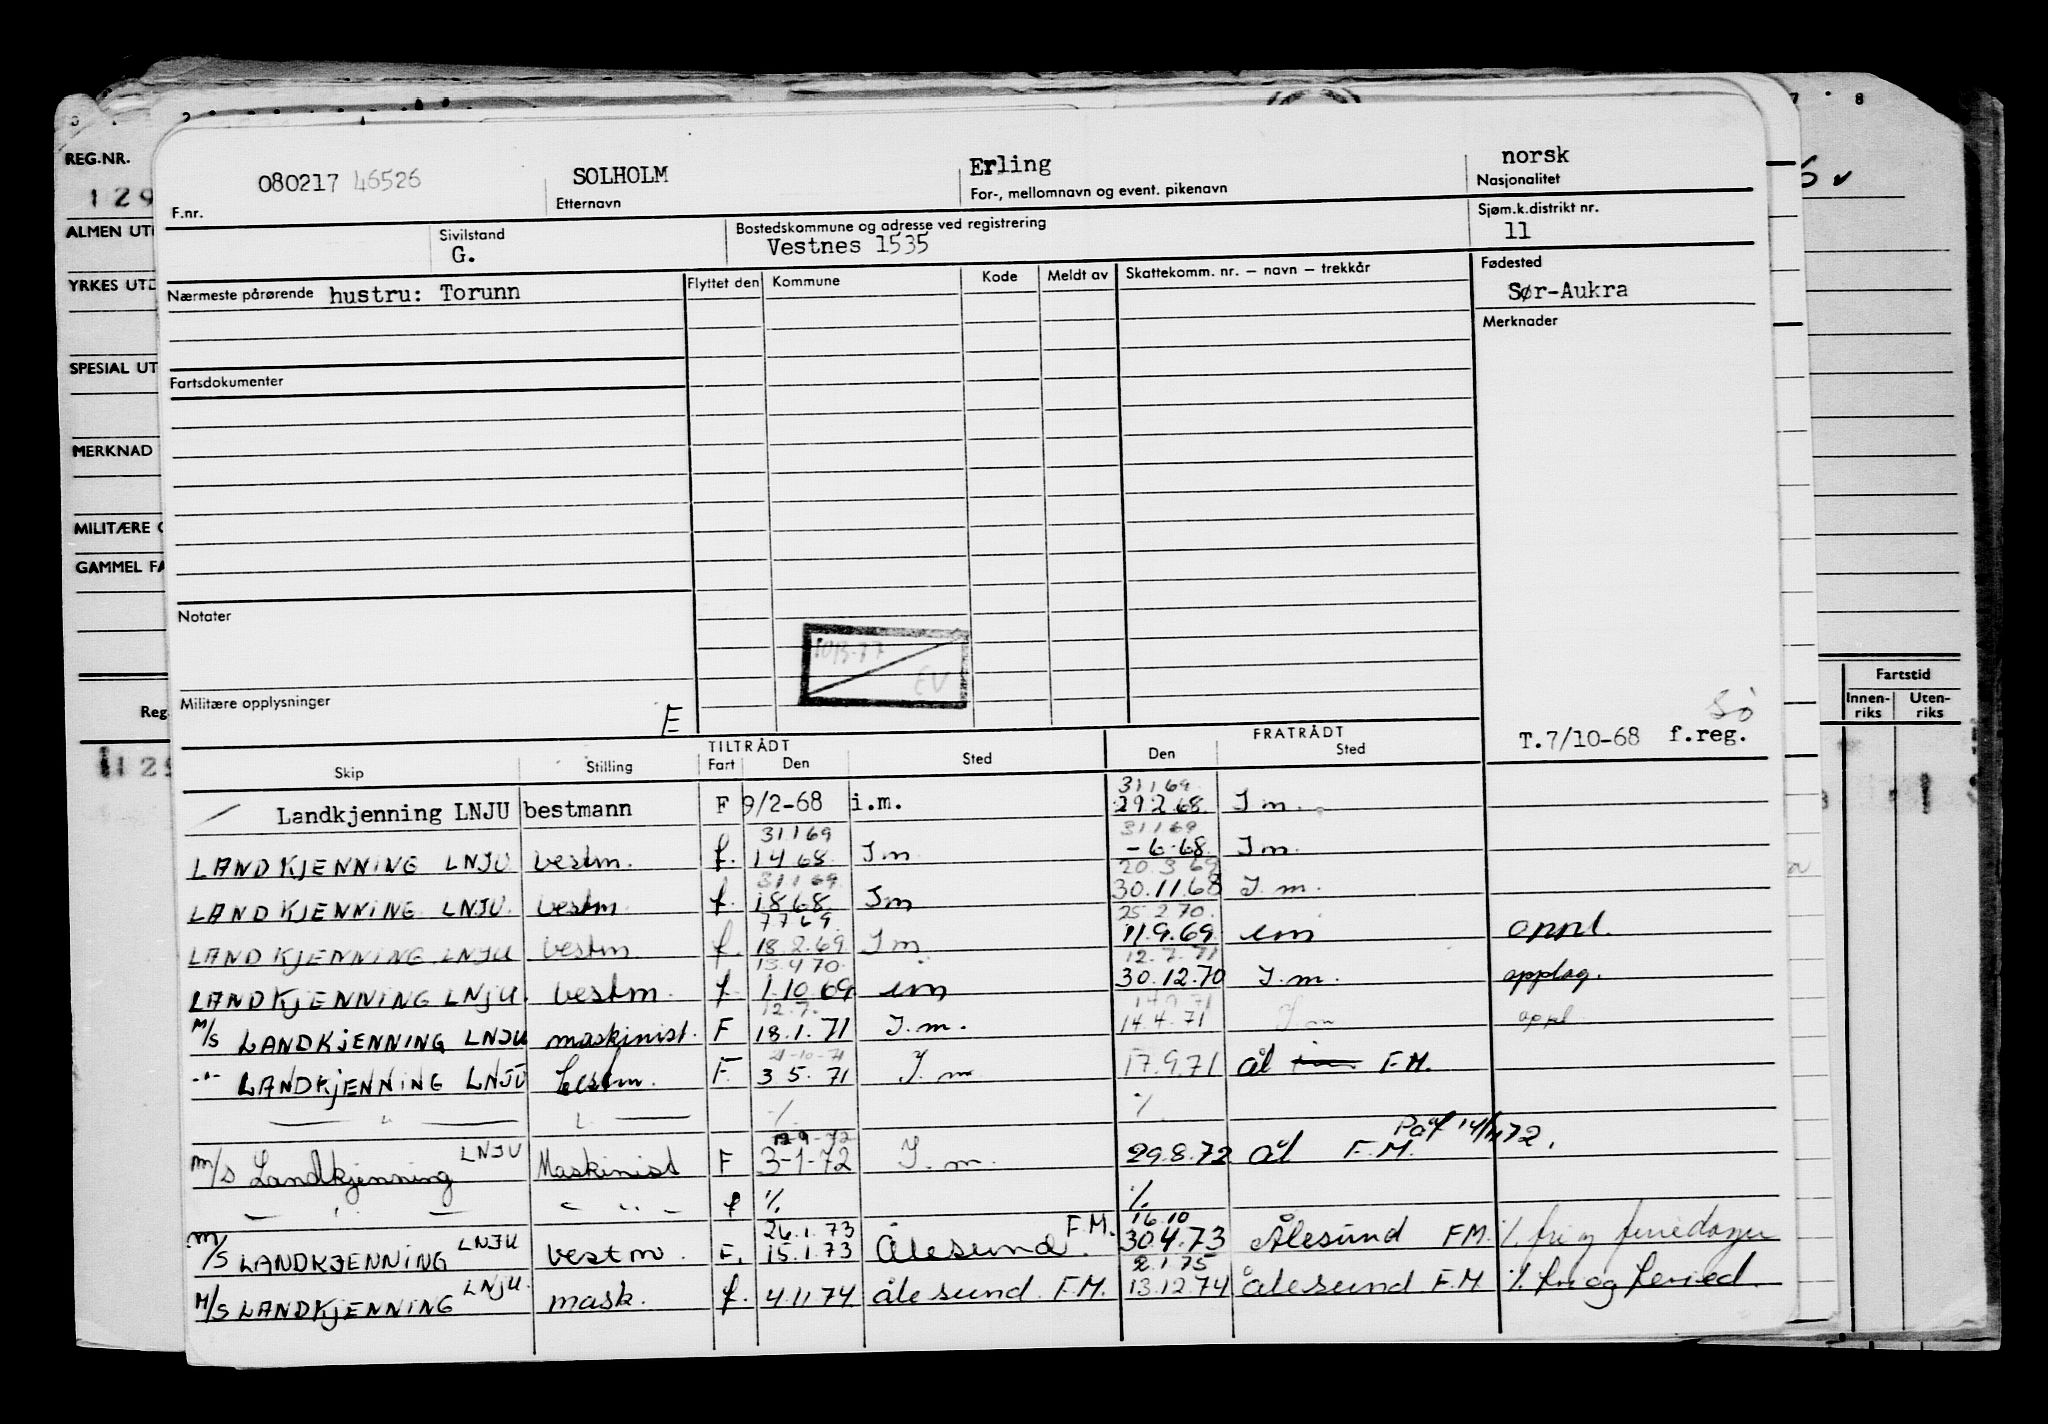 REG.NR.
129
ALMEN UT
YRKES UTD
SPESIAL UT
MERKNAD
MILITÆRE O
GAMMEL FA
Reg
129
080217 46526 SOLHOLM Erling norsk
F.nr. Etternavn For-, mellomnavn og event. pikenavn Nasjonalitet
Sivilstand Bostedskommune og adresse ved registrering Sjøm.k.distrikt nr.
G. Vestnes 1535 11
Nærmeste pårørende hustru: Torunn Flyttet den Kommune Kode Meldt av Skattekomm. nr. – navn – trekkår Fødested
Sør-Aukra
Merknader
Fartsdokumenter
Notater
EV
Militære opplysninger E
Fartstid
Innen-riks Uten-riks
TILTRÅDT FRATRÅDT T.7/10-68 f.reg.
Skip Stilling Fart Den Sted Den Sted
31 1 69
Landkjenning LNJU bestmann F 9/2-68 i.m. 29 2 68 I m.
31 1 69 31 1 69
LANDKJENNING LNJU bestm. f. 1 4 68 I m - 6 68 I m.
31 1 69 20.3 69
LANDKJENNING LNJU. bestm. f. 1 8 68. I m 30.11.68 I. m.
7 7 69. 25 2 70.
LANDKJENNING LNJU bestm f. 18.2.69 I m 11.9.69 im oppl.
13.4 70. 12.7.71
LANDKJENNING LNJU. bestm. f 1.10 69 im 30.12.70 I. m. opplag.
12.7.
M/S LANDKJENNING LNJU maskinist. F 18.1.71 I. m. 14.4.71 I m oppl
21-10-71
-"- LANDKJENNING LNJU bestm. F. 3 5. 71 I. m 17.9.71 ål F.M.
— " — %. %.
12-9-72 Påf 14/11 72.
M/S Landkjenning LNJU Maskinist F 3-1-72 I. m. 29.8.72 ål F.M.
— " — f %. %.
26.1.73 16.10
M/S LANDKJENNING LNJU bestm. F. 15.1.73 Ålesund F.M. 30.4.73 Ålesund FM. %. fri og feriedager
2.1.75
M/S LANDKJENNING LNJU. mask. f. 4.11.74 ålesund F.M. 13.12.74 ålesund F.M %. fri og feried.